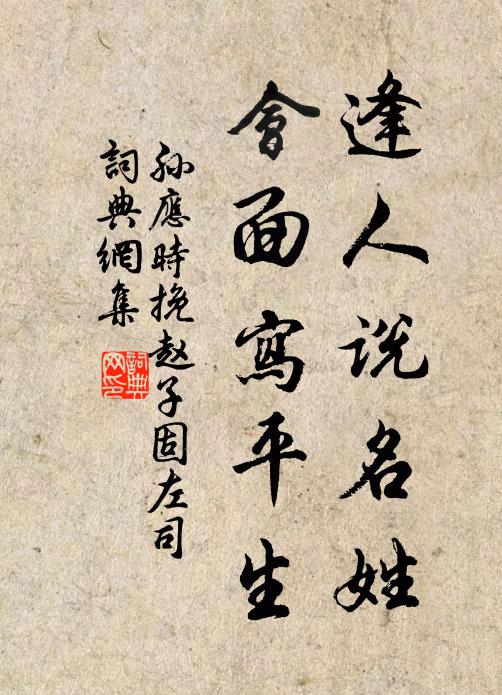 逢人说名姓
會面寫平生
孙應時挽赵子固左司
詞典網集
詞典网印